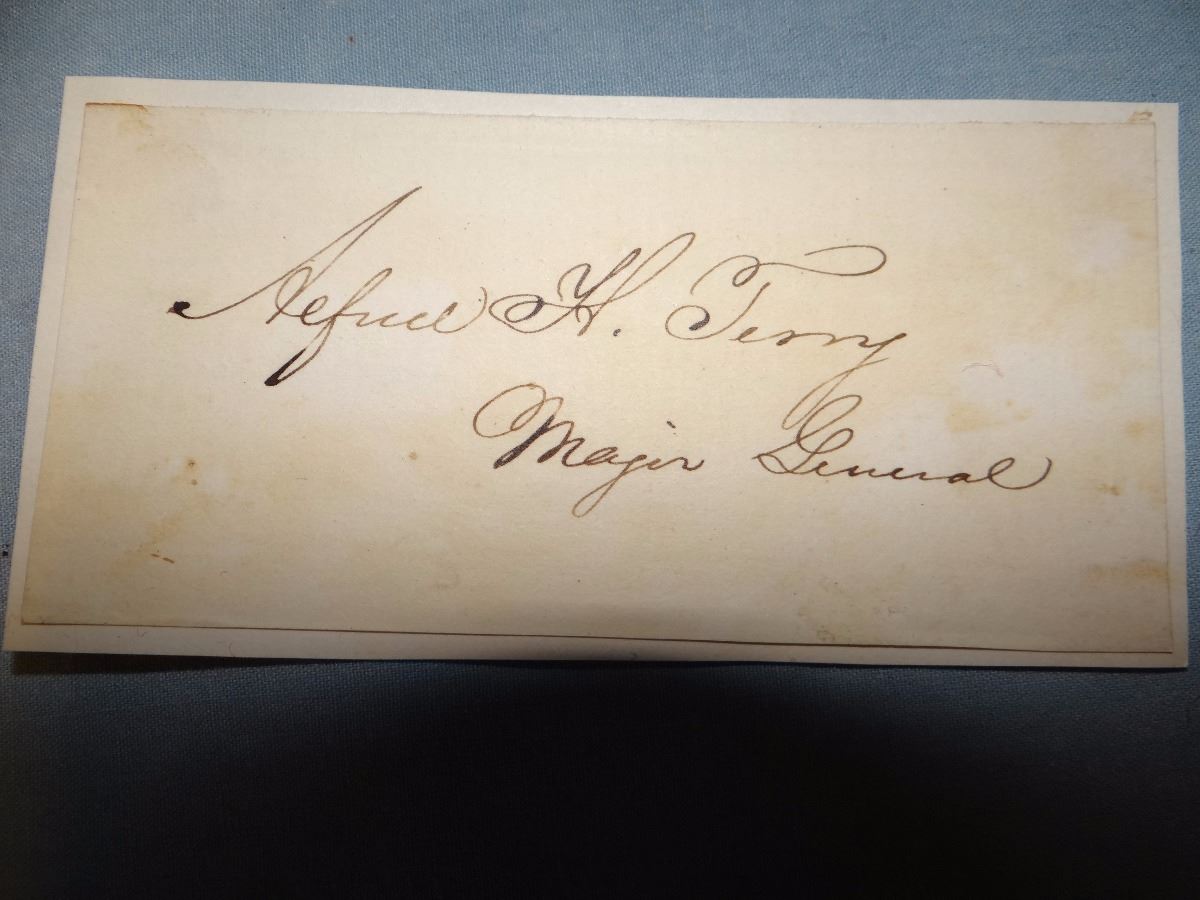 Alfred H. Terry
Major General